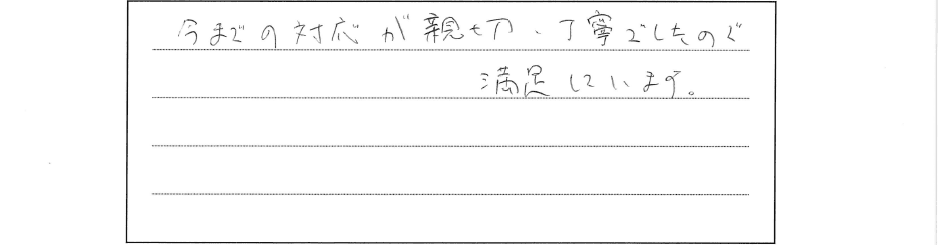 今までの対応が親切、丁寧でしたので
満足しています。